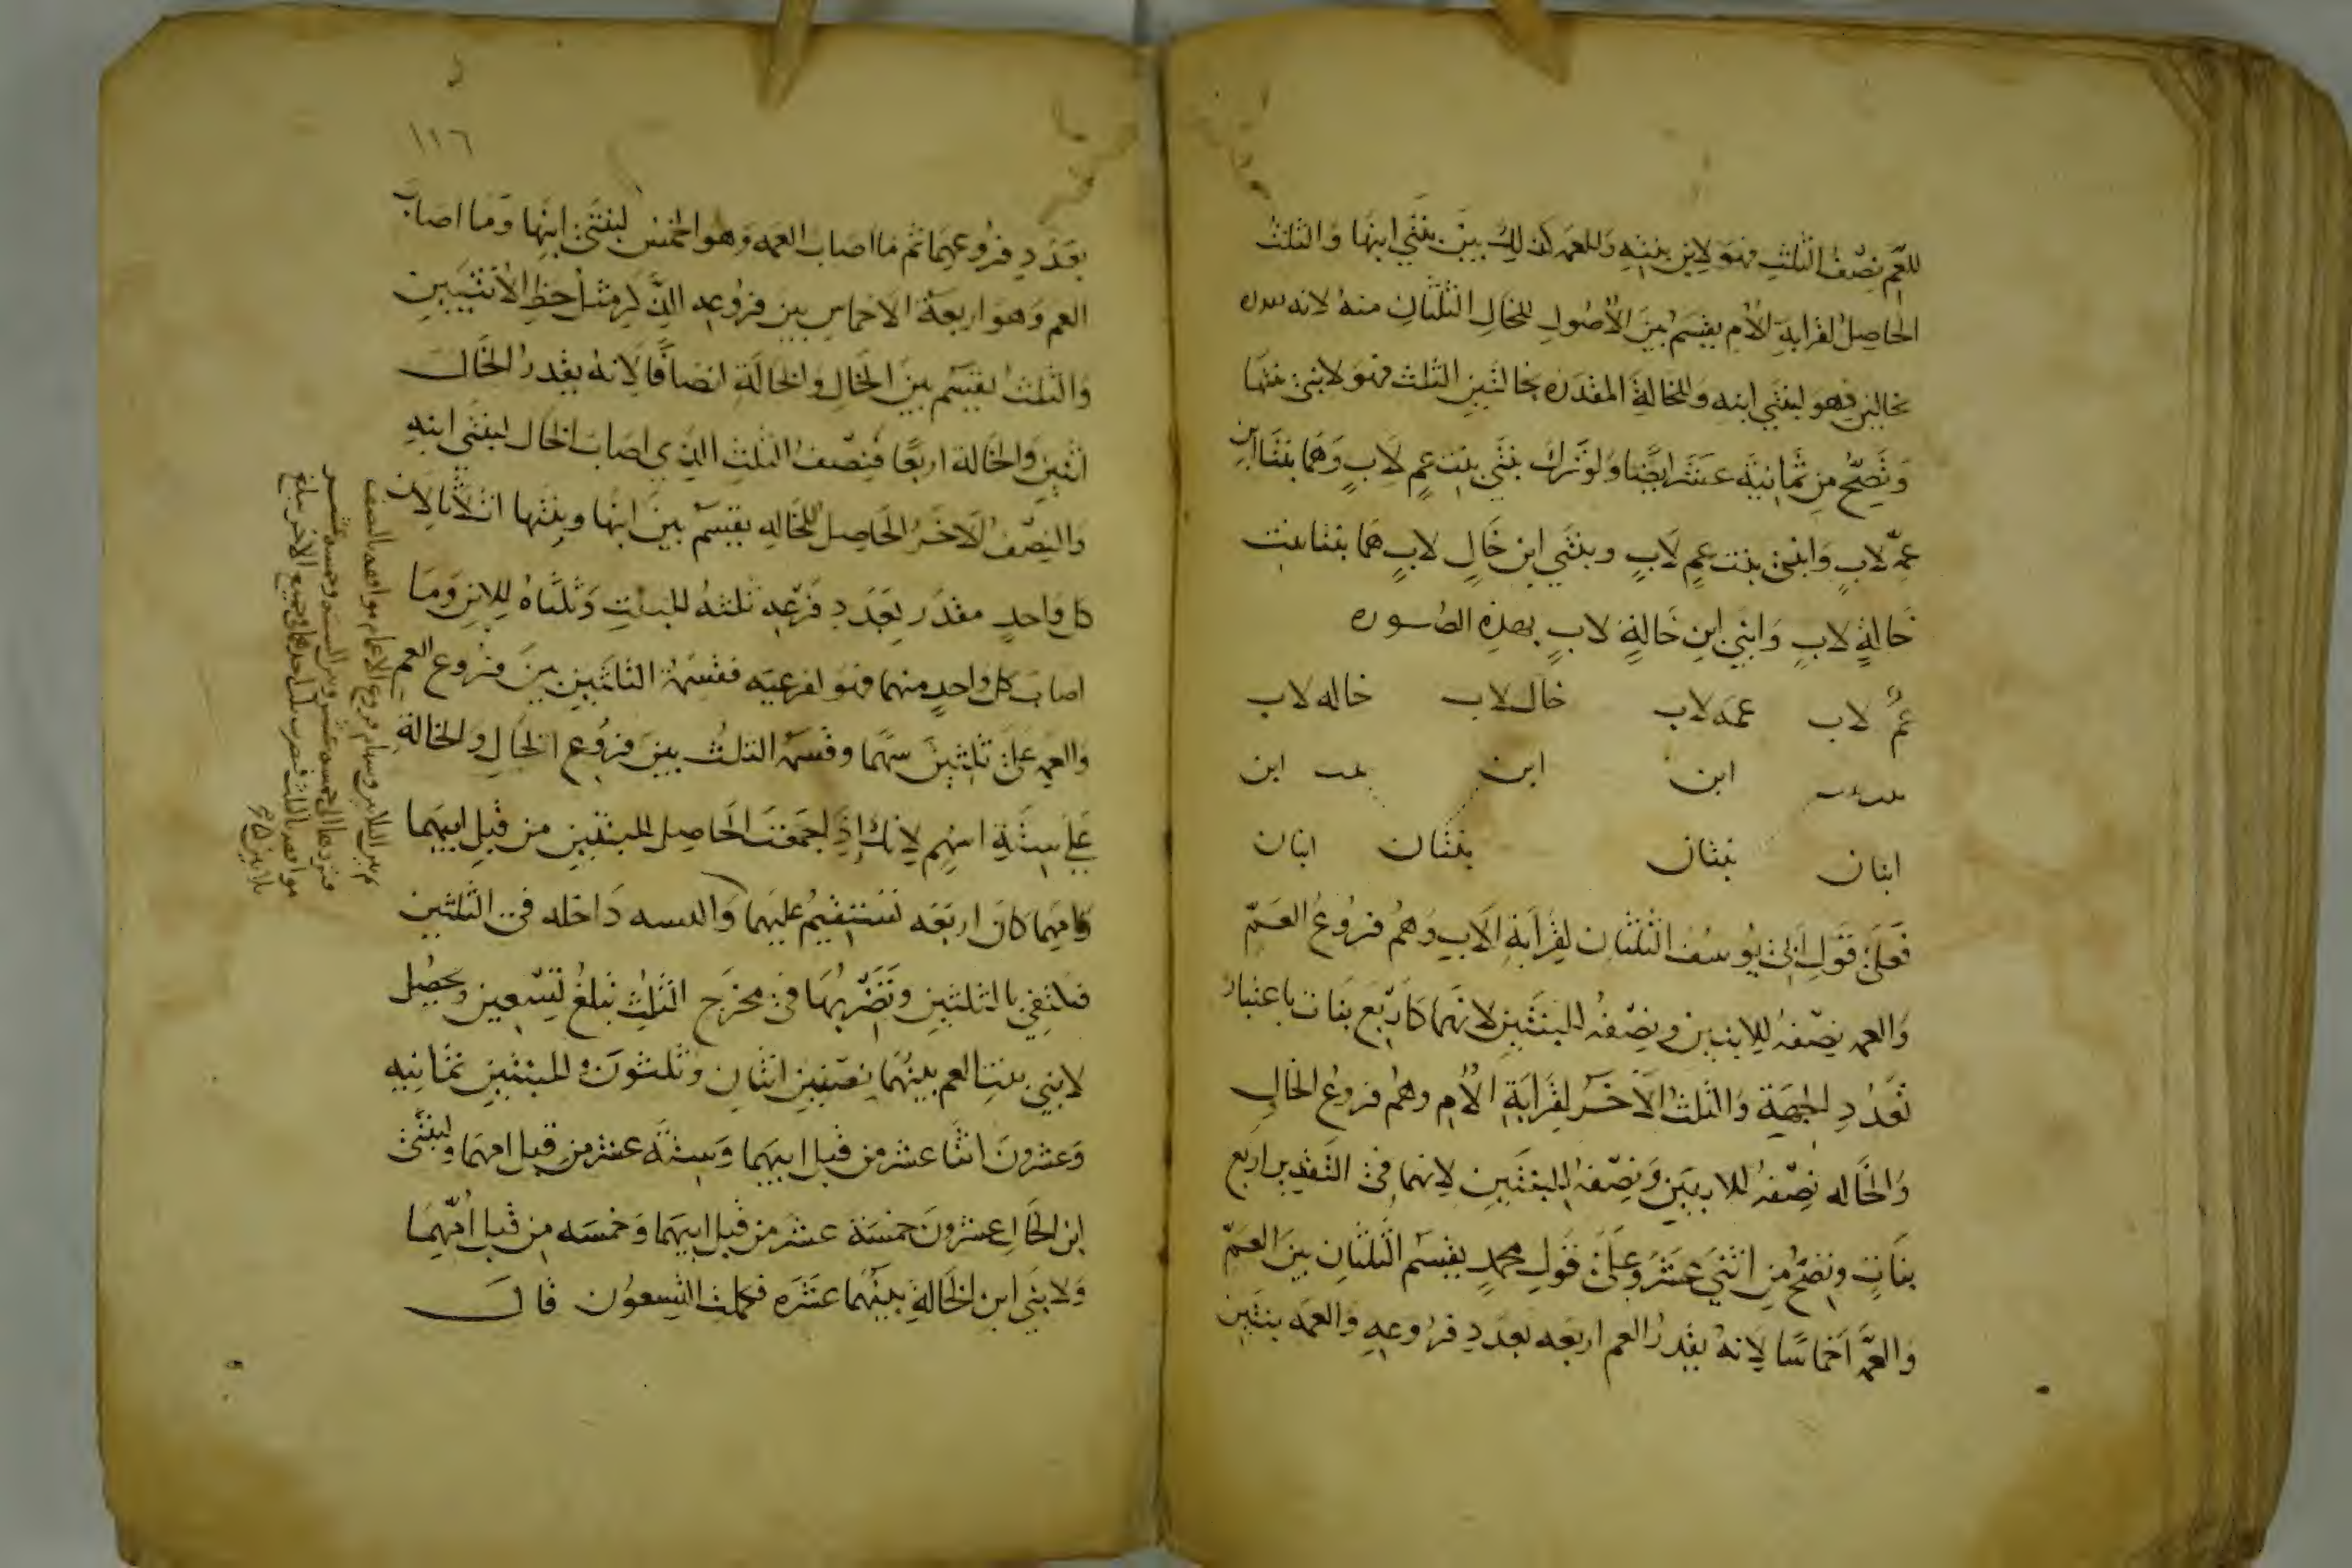 للعم نصف الثلث فهو لابن بنته وللعمه كذلك بين بنتي ابنها والثلث
الحاصل لقرابة الام يقسم بين الاصول للخال الثلثان منه لانه
بخالين فهو لبنتي ابنه وللخالة المقدره بخالتين الثلث فهو لابني
وتصح من ثمانية عشر ايضا ولو ترك بنتي بنت عم لاب وهما بنتا ابن
عمة لاب وابني بنت عم لاب وبنتي ابن خال لاب هما بنتا بنت
خالة لاب وابني ابن خالة لاب بهذه الصوره
عم لاب عمه لاب خال لاب خاله لاب
ابن ابن بنت ابن
ابنان بنتان بنتان ابنان
فعلى قول ابي يوسف الثلثان لقرابة الاب وهم فروع العم
والعمه نصفه للابنين ونصفه للبنتين لانهما كاربع بنات باعتبار
تعدد الجهة والثلث الاخر لقرابة الام وهم فروع الخال
والخاله نصفه للابنين ونصفه للبنتين لانهما في التقدير اربع
بنات وتصح من اثني عشر وعلى قول محمد يقسم الثلثان بين العم
والعمة اخماسا لانه يقدر العم اربعه بعدد فروعه والعمه بنتين
١١٦
بعدد فروعهما ثم ما اصاب العمه وهو الخمس لبنتي ابنها وما اصاب
العم وهو اربعة الاخماس بين فروعه للذكر مثل حظ الانثيين
والثلث يقسم بين الخال والخالة انصافا لانه يقدر الخال
اثنين والخالة اربعا فنصف الثلث الذي اصاب الخال لبنتي ابنه
والنصف الاخر الحاصل للخاله يقسم بين ابنها وبنتها اثلاثا لان
كل واحد مقدر بعدد فرعه ثلثه للبنت وثلثاه للابن وما
اصاب كل واحد منهما فهو لفرعيه فقسمة الثلثين بين فروع العم
والعمه على ثلثين سهما وقسمة الثلث بين فروع الخال والخالة
على ستة اسهم لانك اذا جمعت الحاصل للبنتين من قبل ابيهما
وامهما كان اربعه تستقيم عليهما والسته داخله في الثلثين
فتكتفي بالثلثين وتضربها في مخرج الثلث تبلغ تسعين ويحصل
لابني بنت العم بينهما نصفين اثنان وثلثون وللبنتين ثمانيه
وعشرون اثنا عشر من قبل ابيهما وستة عشر من قبل امهما ولبنتي
ابن الخال عشرون خمسة عشر من قبل ابيهما وخمسه من قبل امهما
ولابني ابن الخالة بينهما عشره فكملت التسعون قال